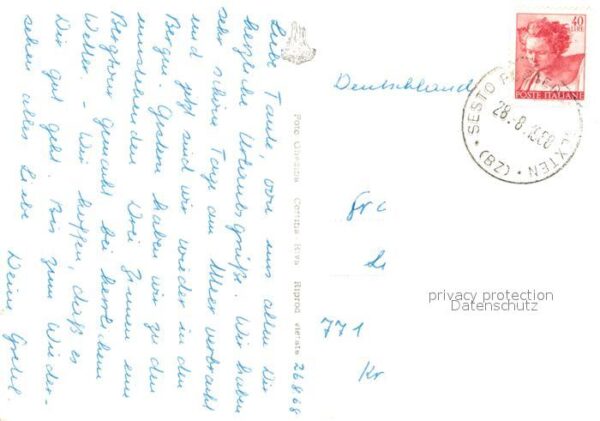 Liebe Tante, von uns allen Dir
herzliche Urlaubsgrüße. Wir haben
sehr schöne Tage am Meer verbracht
und jetzt sind wir wieder in den
Bergen. Gestern haben wir zu den
umstehenden Drei Zinnen eine
Bergtour gemacht bei herrlichem
Wetter. - Wir hoffen, daß es
Dir gut geht. Bis zum Wieder-
sehen alles Liebe
Deine Gretel.
Foto Riva Riprod. vietata 26868
40
LIRE
POSTE ITALIANE
SESTO SEXTEN
28.-8.
(BZ)
Deutschland
Fr
771
Kr
privacy protection
Datenschutz